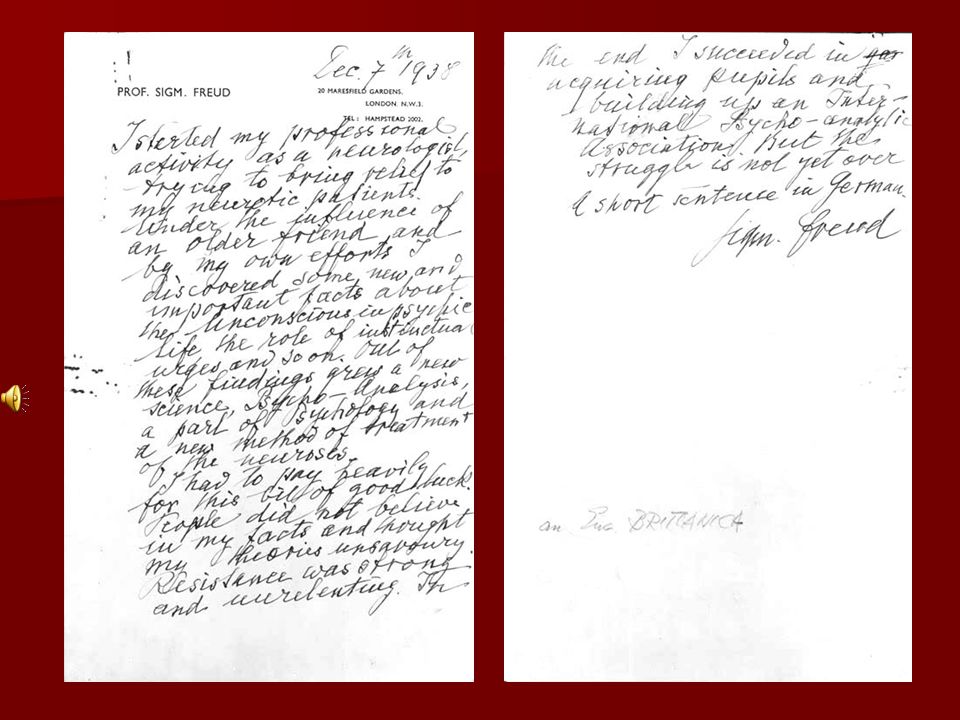 Dec. 7th 1938
PROF. SIGM. FREUD
20 MARESFIELD GARDENS,
LONDON. N.W.3.
TEL: HAMPSTEAD 2002.
I sterted my professional
activity as a neurologist,
trying to bring relief to
my neurotic patients.
Under the influence of
an older friend and
by my own efforts I
discovered some new and
important facts about
the Unconscious in psychic
life the role of instinctual
urges and so on. Out of
these findings grew a new
science, Psycho-Analysis,
a part of Psychology and
a new method of treatment
of the neuroses.
I had to pay heavily
for this bit of good luck.
People did not believe
in my facts and thought
my theories unsavoury.
Resistance was strong
and unrelenting. In
the end I succeeded in
acquiring pupils and
building up an Inter-
national Psycho-analytic
Association. But the
struggle is not yet over
A short sentence in German.
Sigm. Freud
an Enc. BRITTANICA